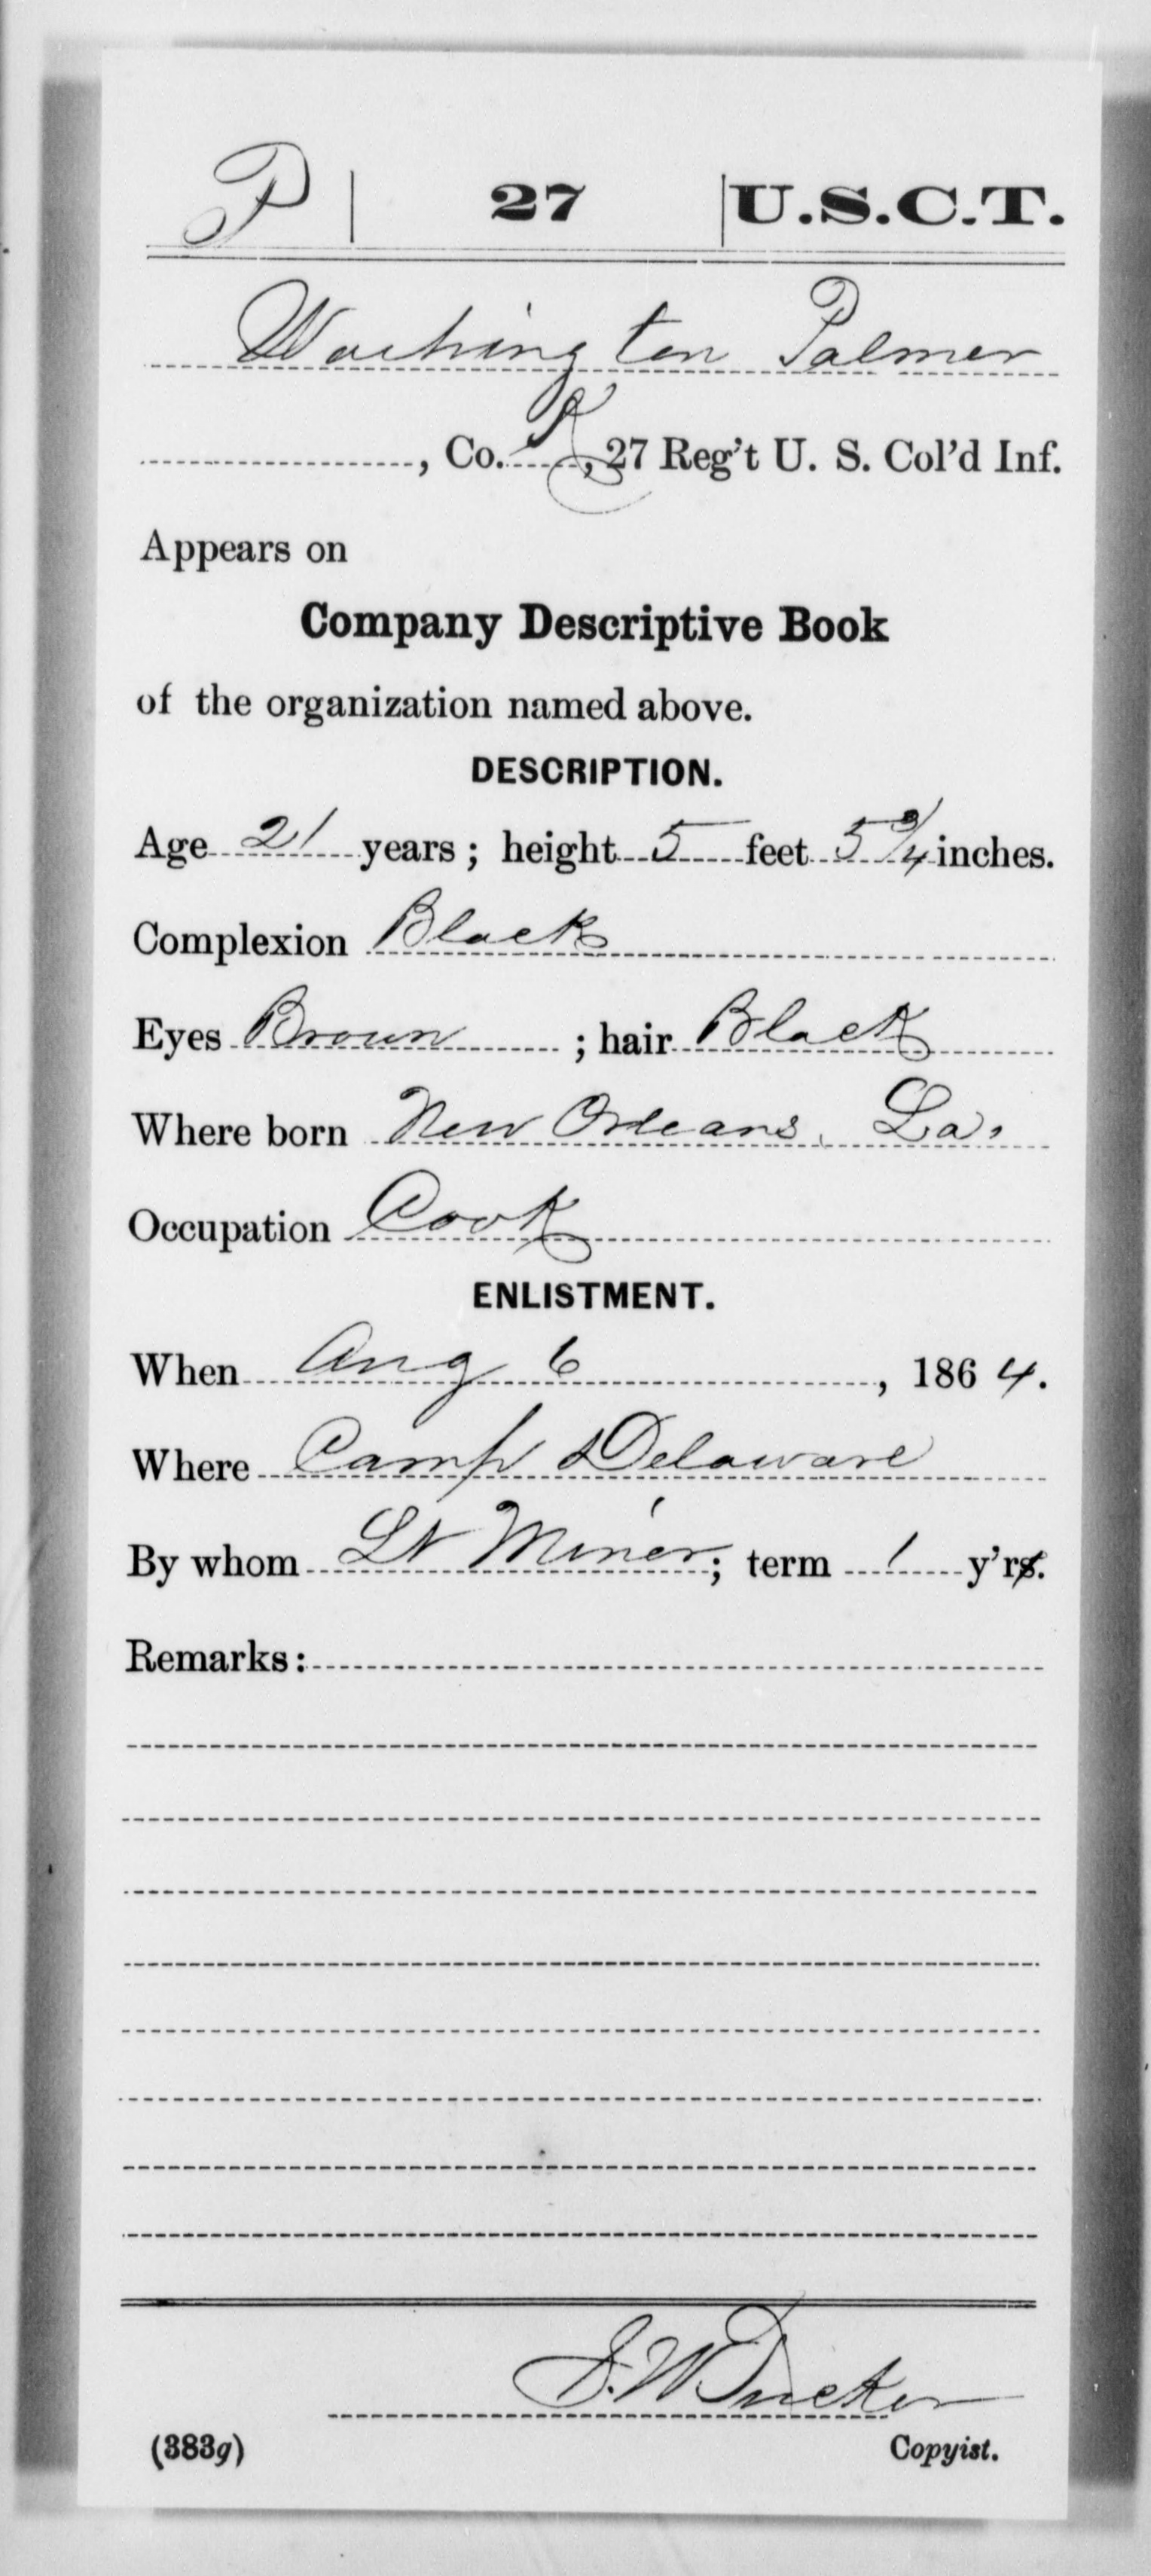 P | 27 | U.S.C.T.
Washington Palmer
, Co. K, 27 Reg't U. S. Col'd Inf.
Appears on
Company Descriptive Book
of the organization named above.
DESCRIPTION.
Age 21 years; height 5 feet 5 3/4 inches.
Complexion Black
Eyes Brown ; hair Black
Where born New Orleans, La.
Occupation Cook
ENLISTMENT.
When Aug 6 , 1864.
Where Camp Delaware
By whom Lt Miner; term 1 y'rs.
Remarks:
J. W. Tucker
(383g) Copyist.